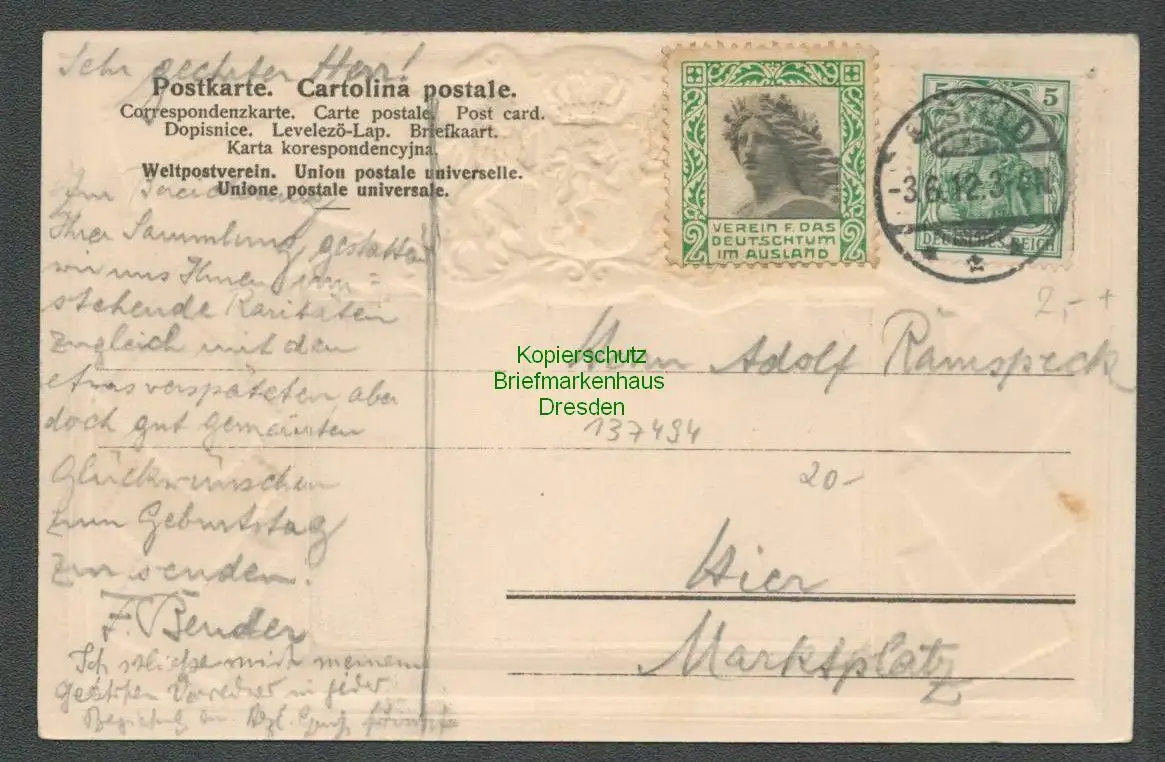 Sehr geehrter Herr!
Postkarte. Cartolina postale.
Correspondenzkarte. Carte postale. Post card.
Dopisnice. Levelező-Lap. Briefkaart.
Karta korespondencyjna.
Weltpostverein. Union postale universelle.
Unione postale universale.
Zur Bereicherung
Ihrer Sammlung gestatten
wir uns Ihnen um=
stehende Raritäten
zugleich mit den
etwas verspäteten aber
doch gut gemeinten
Glückwünschen
zum Geburtstag
zu senden.
F. Bender
Ich schließe mich meinem
geehrten Vorredner in jeder
VEREIN F. DAS
DEUTSCHTUM
IM AUSLAND
5 5
DEUTSCHES REICH
-3.6.12.3-4N
2,- +
Herrn Adolf Ramspeck
Kopierschutz
Briefmarkenhaus
Dresden
137494
20-
Hier
Marktplatz